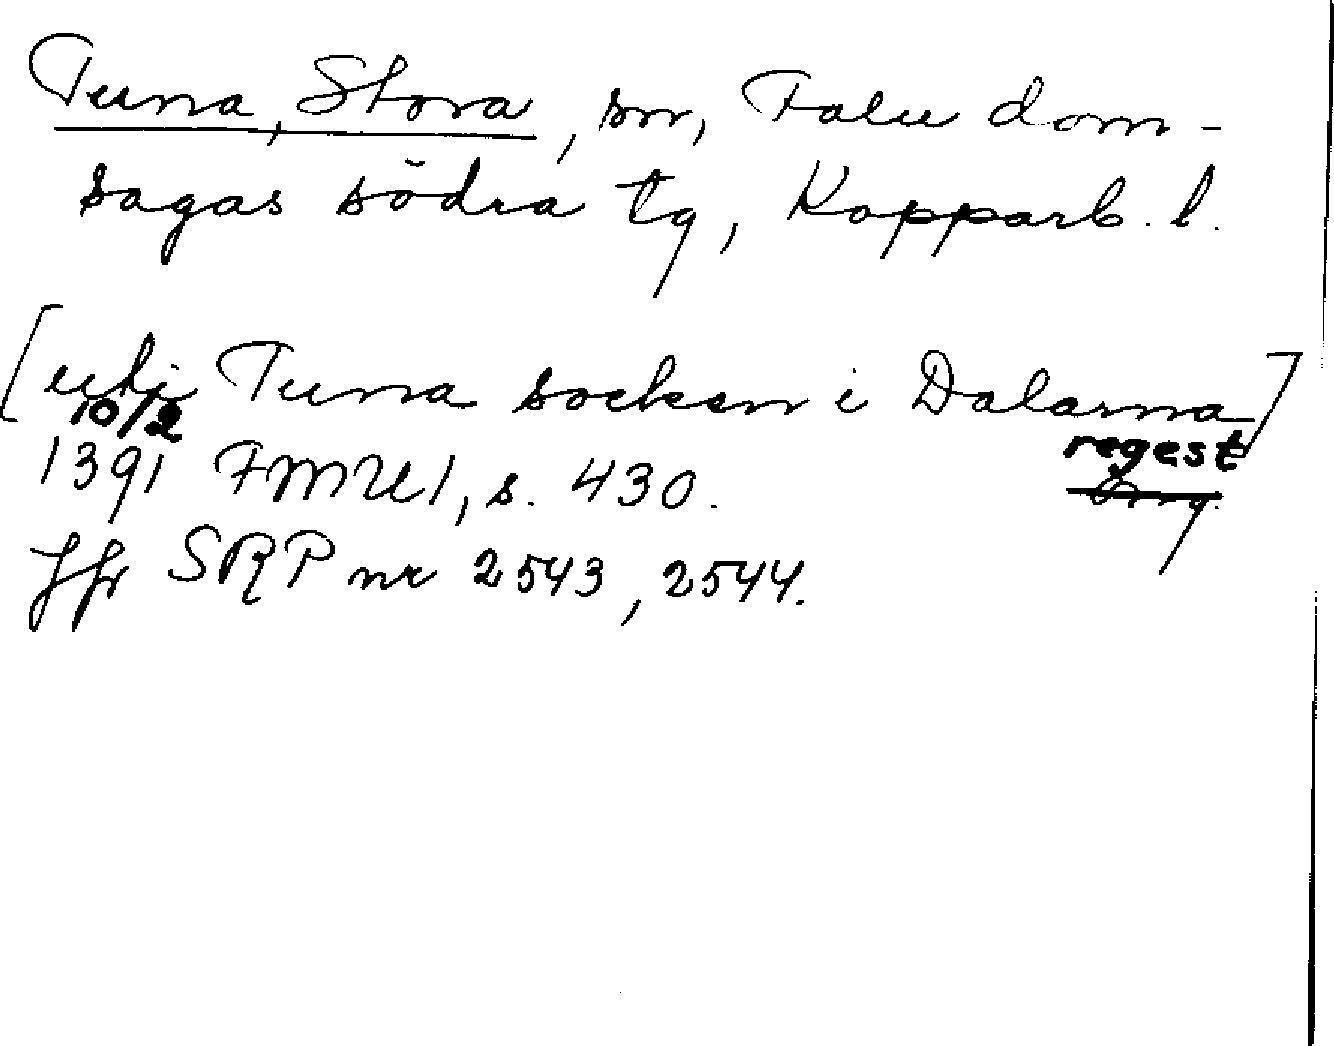 Tuna, Stora, sn, Falu dom-
sagas södra tg, Kopparb. l.
[uti Tuna socken i Dalarna]
10/2 regest
1391 FMU 1, s. 430.
Jfr SRP nr 2543, 2544.